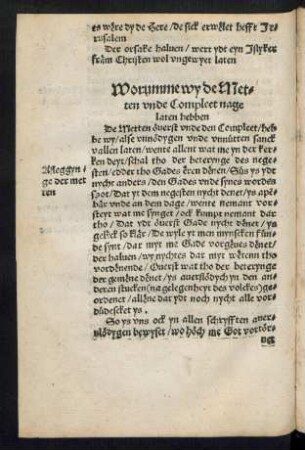 es wåre dy de Here / de sick erwölet hefft Je-
rusalem
Der orsake haluen / wert ydt eyn Jslyker
fråm Christen wol vngewyer laten
Worumme wy de Met-
ten vnde Compleet nage
laten hebben
De Metten överst vnde den Compleet / heb-
be wy / alse vnnödygen vnde vnnütten sanck
vallen laten / wente allent wat me yn der ker-
ken deyt / schal tho der beterynge des nege-
sten / edder tho Gades eren denen / Süs ys ydt
nycht anders / den Gades vnde synes wordes
spot / Dat yt dem negesten nycht denet / ys apē-
bår vnde an dem dage / wente nemant vor-
steyt wat me synget / ock kumpt nemant dar
tho / Dat ydt överst Gade nycht denet / ys
gestkck so klår / De wyle yt men mynschen fün-
de synt / dat myt me Gade vorgeues denet /
der haluen / wy nychtes dar myt weten tho
vordenende / Överst wat tho der beterynge
der gemene denet / ys auerslödych yn den an-
deren stucken (na gelegenheyt des volckes) ge-
ordenet / allene dat ydt noch nycht alle vor-
düdescket ys.
So ys vns ock yn allen schryfften auer-
slödygen bewyset / wo höch me Got vortör-
net
Afleggyn-
ge der met
ten